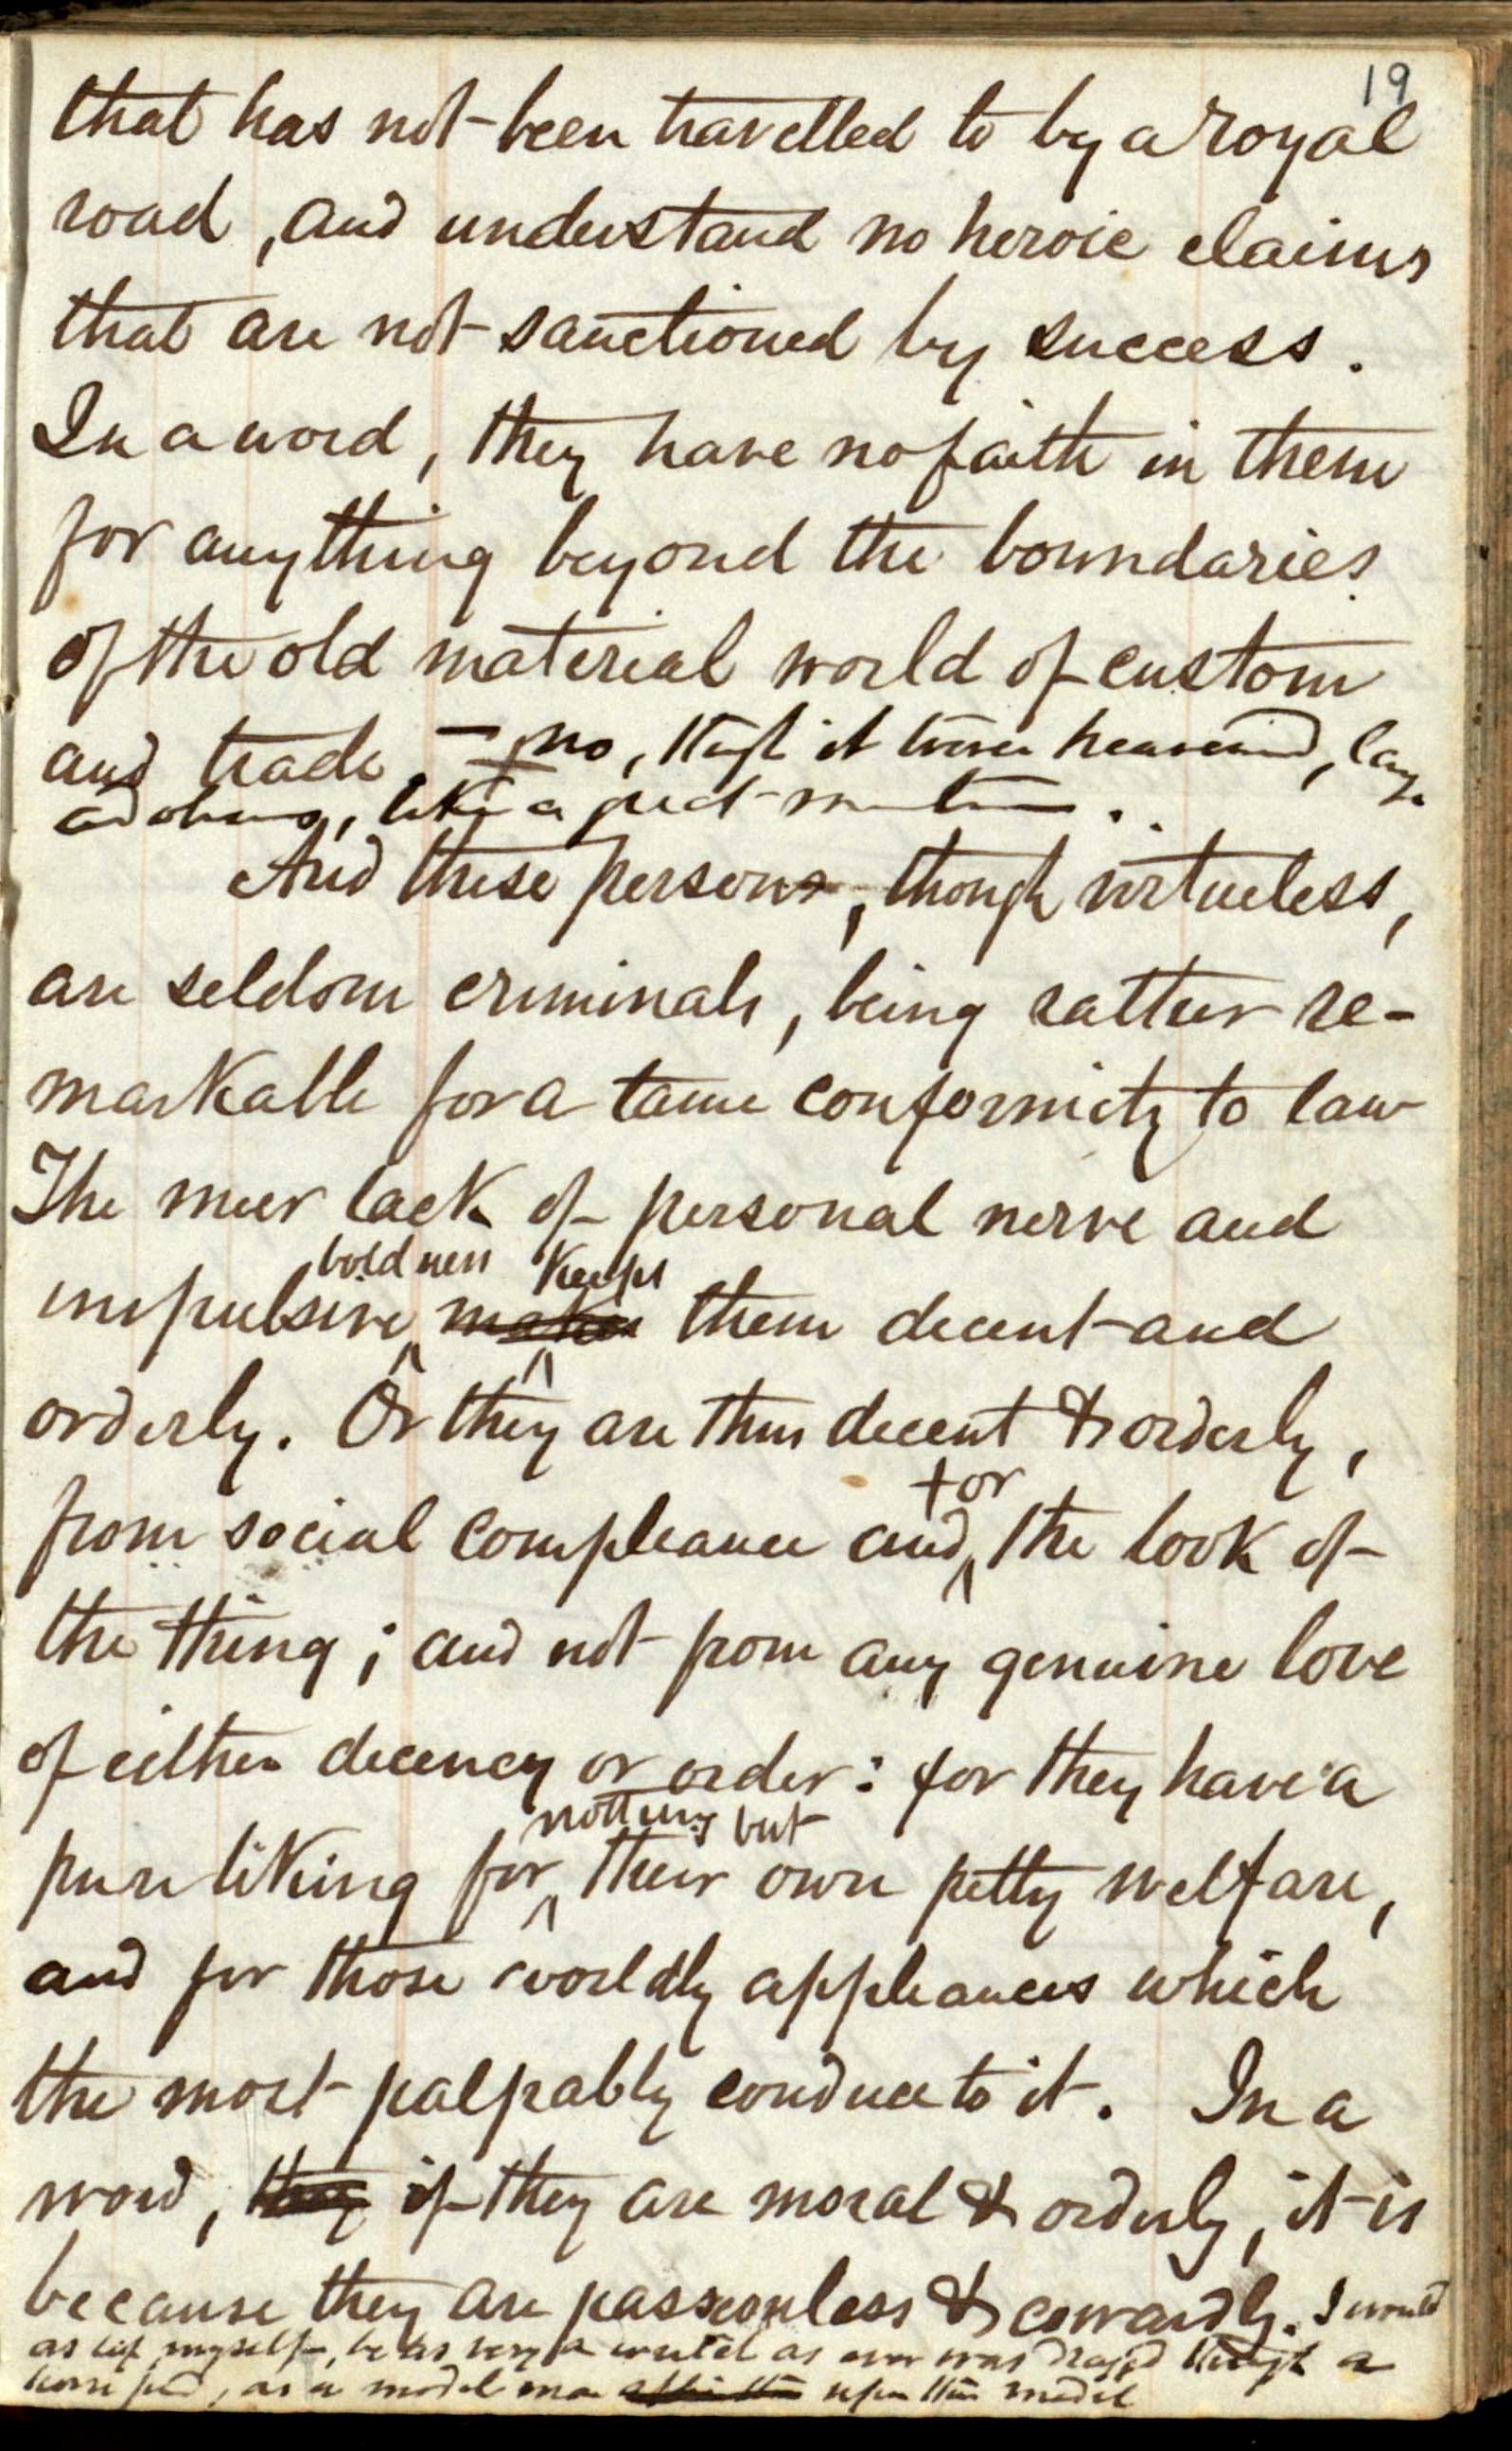 19
that has not been travelled to by a royal
road, and understand no heroic claims
that are not sanctioned by success.
In a word, they have no faith in them
for anything beyond the boundaries
of the old material world of custom
and trade, — no, though it were heaved, large
and obvious, like a great mountain.
And these persons, though virtueless,
are seldom criminals, being rather re-
markable for a tame conformity to law
The meer lack of personal nerve and
boldness keeps
impulsive makes them decent and
orderly. Or they are thus decent & orderly,
for
from social compliance and the look of
the thing; and not from any genuine love
of either decency or order: for they have a
nothing but
pure liking for their own petty welfare,
and for those worldly appliances which
the most palpably conduce to it. In a
word, they if they are moral & orderly, it is
because they are passionless & cowardly. I would
as lief myself, be as very a wretch as ever was dragg'd through a
horse pond, as a model man upon this model